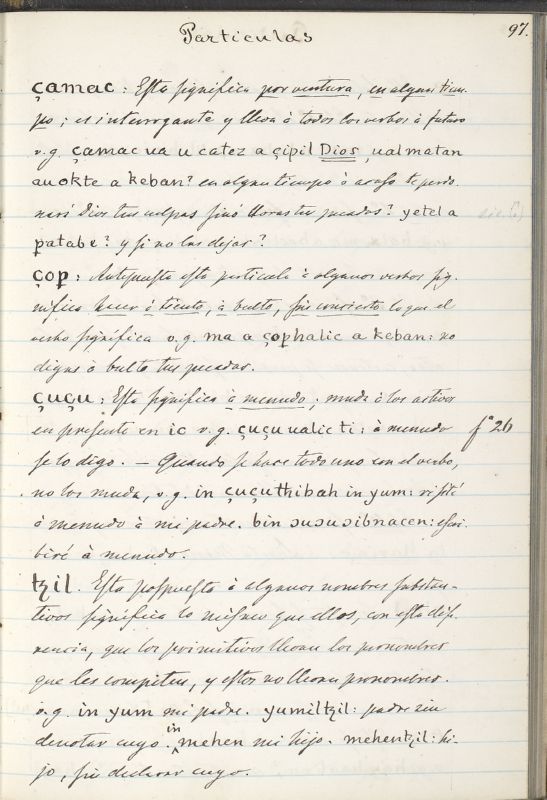 Particulas
97.
çamac: Esta significa por ventura, en algun tiem-
po; es interrogante y lleva à todos los verbos à futuro
v.g. çamac ua u catez a çipil Dios, ualmatan
auokte a keban? en algun tiempo ò acaso te perdo-
nará Dios tus culpas sinó lloras tus pecados? yetel a
patabe? y si no las dejas?
çop: Antepuesta esta particula à algunos verbos sig-
nifica hacer à tiento, à bulto, sin concierto lo que el
verbo significa v.g. ma a çophalic a keban: no
digas à bulto tus pecados.
çuçu: Esta significa à menudo; muda à los activos
en presente en ic v.g. çuçu ualic ti: à menudo fº 26
se lo digo. — Quando se hace todo uno con el verbo,
no los muda, v.g. in çuçuthibah in yum: visité
à menudo à mi padre. bin ɔuɔuɔibnacen: escri-
biré à menudo.
tzil. Esta pospuesta à algunos nombres substan-
tivos significa lo mismo que ellos, con esta dife-
rencia, que los primitivos llevan los pronombres
que les competen, y estos no llevan pronombres.
v.g. in yum mi padre. yumiltzil: padre sin
denotar cuyo. in mehen mi hijo. mehentzil: hi-
jo, sin declarar cuyo.